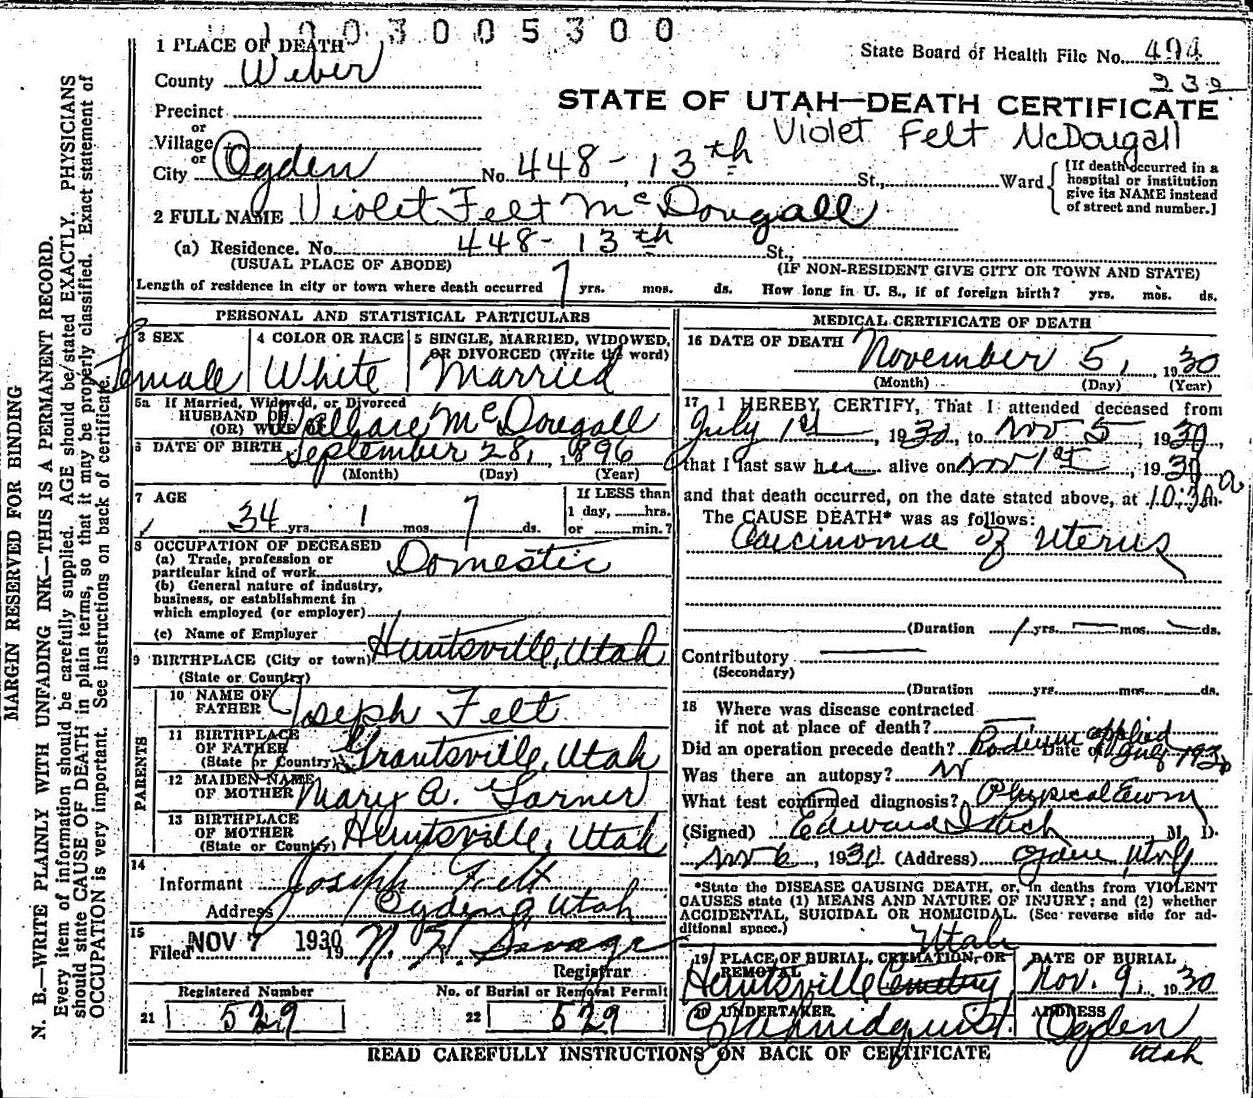 1003005300
1 PLACE OF DEATH
State Board of Health File No. 494
County Weber
232
STATE OF UTAH—DEATH CERTIFICATE
Precinct
or
Violet Felt McDougall
Village
or
City Ogden No. 448-13th St., Ward
[If death occurred in a hospital or institution give its NAME instead of street and number.]
2 FULL NAME Violet Felt McDougall
(a) Residence. No. 448-13th St.,
(USUAL PLACE OF ABODE) (IF NON-RESIDENT GIVE CITY OR TOWN AND STATE)
Length of residence in city or town where death occurred 7 yrs. mos. ds. How long in U. S., if of foreign birth? yrs. mos. ds.
PERSONAL AND STATISTICAL PARTICULARS
3 SEX
Female
4 COLOR OR RACE
White
5 SINGLE, MARRIED, WIDOWED,
OR DIVORCED (Write the word)
Married
5a If Married, Widowed, or Divorced
HUSBAND OF
(OR) WIFE OF McDougall
6 DATE OF BIRTH September 28, 1896
(Month) (Day) (Year)
7 AGE
34 yrs. 1 mos. 7 ds.
If LESS than
1 day, hrs.
or min.?
8 OCCUPATION OF DECEASED
(a) Trade, profession or
particular kind of work Domestic
(b) General nature of industry,
business, or establishment in
which employed (or employer)
(c) Name of Employer
9 BIRTHPLACE (City or town) Huntsville, Utah
(State or Country)
PARENTS
10 NAME OF
FATHER Joseph Felt
11 BIRTHPLACE
OF FATHER
(State or Country) Grantsville, Utah
12 MAIDEN NAME
OF MOTHER Mary A. Garner
13 BIRTHPLACE
OF MOTHER
(State or Country) Huntsville, Utah
14
Informant Joseph Felt
Address Ogden, Utah
15
Filed NOV 7 1930 19
N. H. Savage
Registrar
Registered Number
21 529
No. of Burial or Removal Permit
22 529
MEDICAL CERTIFICATE OF DEATH
16 DATE OF DEATH November 5, 1930
(Month) (Day) (Year)
17 I HEREBY CERTIFY, That I attended deceased from
July 1st, 1930, to Nov 5, 1930,
that I last saw her alive on Nov 1st, 1930
and that death occurred, on the date stated above, at 10:30 a m.
The CAUSE DEATH* was as follows:
Carcinoma of Uterus
(Duration 1 yrs. — mos. — ds.
Contributory —
(Secondary)
(Duration yrs. mos. ds.
18 Where was disease contracted
if not at place of death? —
Did an operation precede death? Radium applied Date of July 1930
Was there an autopsy? No
What test confirmed diagnosis? Physical Exam
(Signed) Edward M. D.
Nov 6, 1930 (Address) Ogden, Utah
*State the DISEASE CAUSING DEATH, or, in deaths from VIOLENT
CAUSES state (1) MEANS AND NATURE OF INJURY; and (2) whether
ACCIDENTAL, SUICIDAL OR HOMICIDAL. (See reverse side for ad-
ditional space.)
19 PLACE OF BURIAL, CREMATION, OR
REMOVAL
Utah
Huntsville Cemetery
DATE OF BURIAL
Nov. 9, 1930
20 UNDERTAKER
ADDRESS
Ogden
Utah
READ CAREFULLY INSTRUCTIONS ON BACK OF CERTIFICATE
MARGIN RESERVED FOR BINDING
N. B.—WRITE PLAINLY WITH UNFADING INK—THIS IS A PERMANENT RECORD.
Every item of information should be carefully supplied. AGE should be stated EXACTLY. PHYSICIANS
should state CAUSE OF DEATH in plain terms, so that it may be properly classified. Exact statement of
OCCUPATION is very important. See instructions on back of certificate.